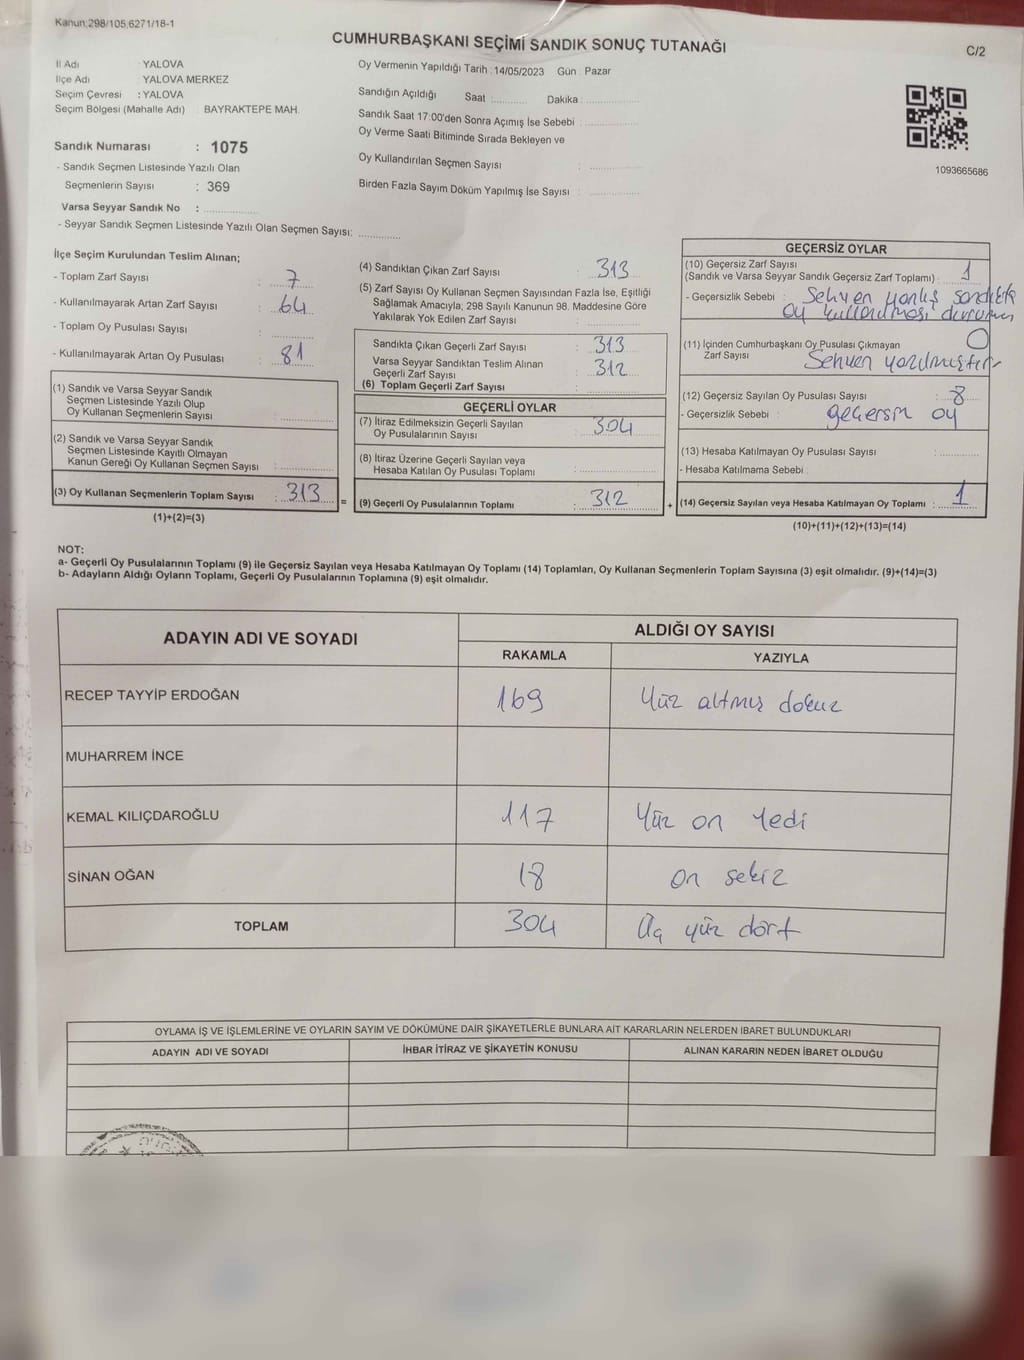 Kanun:298/105,6271/18-1
CUMHURBAŞKANI SEÇİMİ SANDIK SONUÇ TUTANAĞI
C/2
İl Adı YALOVA
İlçe Adı YALOVA MERKEZ
Seçim Çevresi : YALOVA
Seçim Bölgesi (Mahalle Adı) BAYRAKTEPE MAH.
Sandık Numarası : 1075
- Sandık Seçmen Listesinde Yazılı Olan
Seçmenlerin Sayısı : 369
Varsa Seyyar Sandık No :
- Seyyar Sandık Seçmen Listesinde Yazılı Olan Seçmen Sayısı:
Oy Vermenin Yapıldığı Tarih : 14/05/2023 Gün : Pazar
Sandığın Açıldığı Saat Dakika
Sandık Saat 17:00'den Sonra Açımış İse Sebebi
Oy Verme Saati Bitiminde Sırada Bekleyen ve
Oy Kullandırılan Seçmen Sayısı :
Birden Fazla Sayım Döküm Yapılmış İse Sayısı :
1093665686
İlçe Seçim Kurulundan Teslim Alınan;
- Toplam Zarf Sayısı : 7
- Kullanılmayarak Artan Zarf Sayısı : 64
- Toplam Oy Pusulası Sayısı :
- Kullanılmayarak Artan Oy Pusulası : 81
(1) Sandık ve Varsa Seyyar Sandık
Seçmen Listesinde Yazılı Olup
Oy Kullanan Seçmenlerin Sayısı :
(2) Sandık ve Varsa Seyyar Sandık
Seçmen Listesinde Kayıtlı Olmayan
Kanun Gereği Oy Kullanan Seçmen Sayısı :
(3) Oy Kullanan Seçmenlerin Toplam Sayısı : 313 =
(1)+(2)=(3)
(4) Sandıktan Çıkan Zarf Sayısı : 313
(5) Zarf Sayısı Oy Kullanan Seçmen Sayısından Fazla İse, Eşitliği
Sağlamak Amacıyla; 298 Sayılı Kanunun 98. Maddesine Göre
Yakılarak Yok Edilen Zarf Sayısı :
Sandıkta Çıkan Geçerli Zarf Sayısı : 313
Varsa Seyyar Sandıktan Teslim Alınan
Geçerli Zarf Sayısı : 312
(6) Toplam Geçerli Zarf Sayısı :
GEÇERLİ OYLAR
(7) İtiraz Edilmeksizin Geçerli Sayılan
Oy Pusulalarının Sayısı : 304
(8) İtiraz Üzerine Geçerli Sayılan veya
Hesaba Katılan Oy Pusulası Toplamı :
(9) Geçerli Oy Pusulalarının Toplamı : 312 +
GEÇERSİZ OYLAR
(10) Geçersiz Zarf Sayısı
(Sandık ve Varsa Seyyar Sandık Geçersiz Zarf Toplamı) : 1
- Geçersizlik Sebebi : Sehven yanlış sandıkta
oy kullanılması durumu
(11) İçinden Cumhurbaşkanı Oy Pusulası Çıkmayan 0
Zarf Sayısı Sehven yazılmıştır
(12) Geçersiz Sayılan Oy Pusulası Sayısı : 8
- Geçersizlik Sebebi : geçersiz oy
(13) Hesaba Katılmayan Oy Pusulası Sayısı :
- Hesaba Katılmama Sebebi :
(14) Geçersiz Sayılan veya Hesaba Katılmayan Oy Toplamı : 1
(10)+(11)+(12)+(13)=(14)
NOT:
a- Geçerli Oy Pusulalarının Toplamı (9) ile Geçersiz Sayılan veya Hesaba Katılmayan Oy Toplamı (14) Toplamları, Oy Kullanan Seçmenlerin Toplam Sayısına (3) eşit olmalıdır. (9)+(14)=(3)
b- Adayların Aldığı Oyların Toplamı, Geçerli Oy Pusulalarının Toplamına (9) eşit olmalıdır.
ADAYIN ADI VE SOYADI
ALDIĞI OY SAYISI
RAKAMLA YAZIYLA
RECEP TAYYİP ERDOĞAN 169 Yüz altmış dokuz
MUHARREM İNCE
KEMAL KILIÇDAROĞLU 117 Yüz on Yedi
SİNAN OĞAN 18 on sekiz
TOPLAM 304 Üç yüz dört
OYLAMA İŞ VE İŞLEMLERİNE VE OYLARIN SAYIM VE DÖKÜMÜNE DAİR ŞİKAYETLERLE BUNLARA AİT KARARLARIN NELERDEN İBARET BULUNDUKLARI
ADAYIN ADI VE SOYADI İHBAR İTİRAZ VE ŞİKAYETİN KONUSU ALINAN KARARIN NEDEN İBARET OLDUĞU